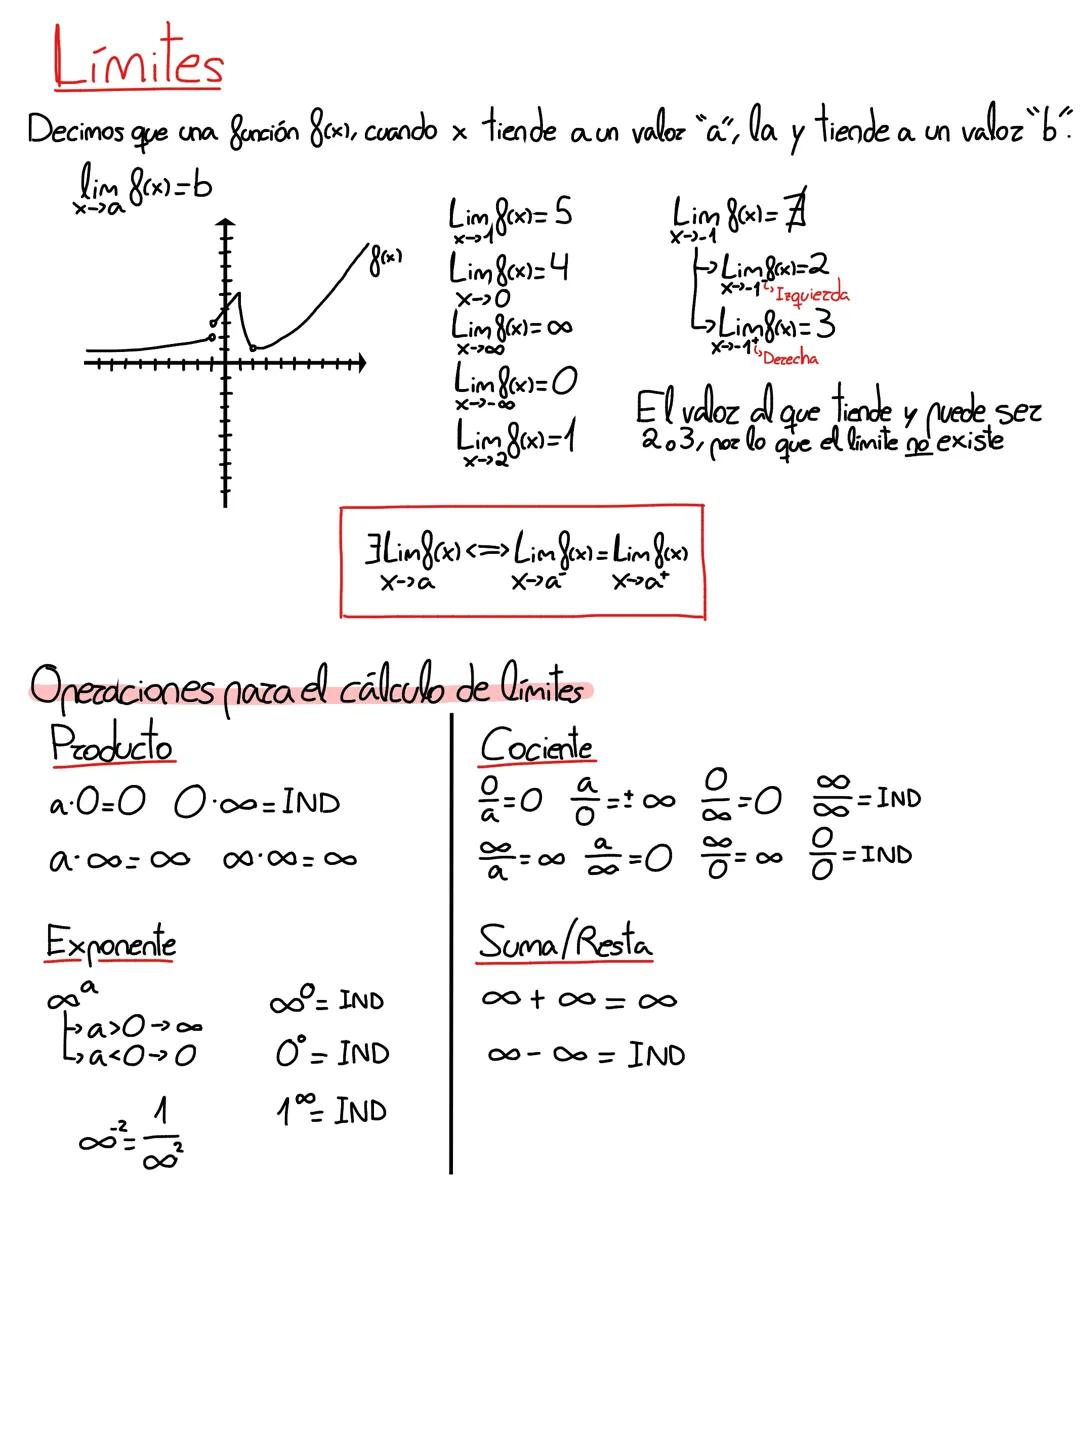 Límites
Decimos que una función f(x), cuando x tiende a un valor "a", la y tiende a un valor "b".
lim f(x)=b
x->a
f(x)
Lim f(x)= 5
x->1
Lim f(x)=4
x->0
Lim f(x)= ∞
x->∞
Lim f(x)=0
x->-∞
Lim f(x)=1
x->2
Lim f(x)= ∄
x->-1
Lim f(x)=2
x->-1⁻ Izquierda
Lim f(x)=3
x->-1⁺ Derecha
El valor al que tiende y puede ser
2 o 3, por lo que el límite no existe
∃Lim f(x) <=> Lim f(x) = Lim f(x)
x->a x->a⁻ x->a⁺
Operaciones para el cálculo de límites
Producto
a·0=0 0·∞=IND
a·∞=∞ ∞·∞=∞
Cociente
0/a=0 a/0=±∞ 0/∞=0 ∞/∞=IND
∞/a=∞ a/∞=0 ∞/0=∞ 0/0=IND
Exponente
∞ᵃ
a>0->∞
a<0->0
∞⁻²=1/∞²
∞⁰= IND
0⁰= IND
1^∞= IND
Suma/Resta
∞+∞=∞
∞-∞= IND